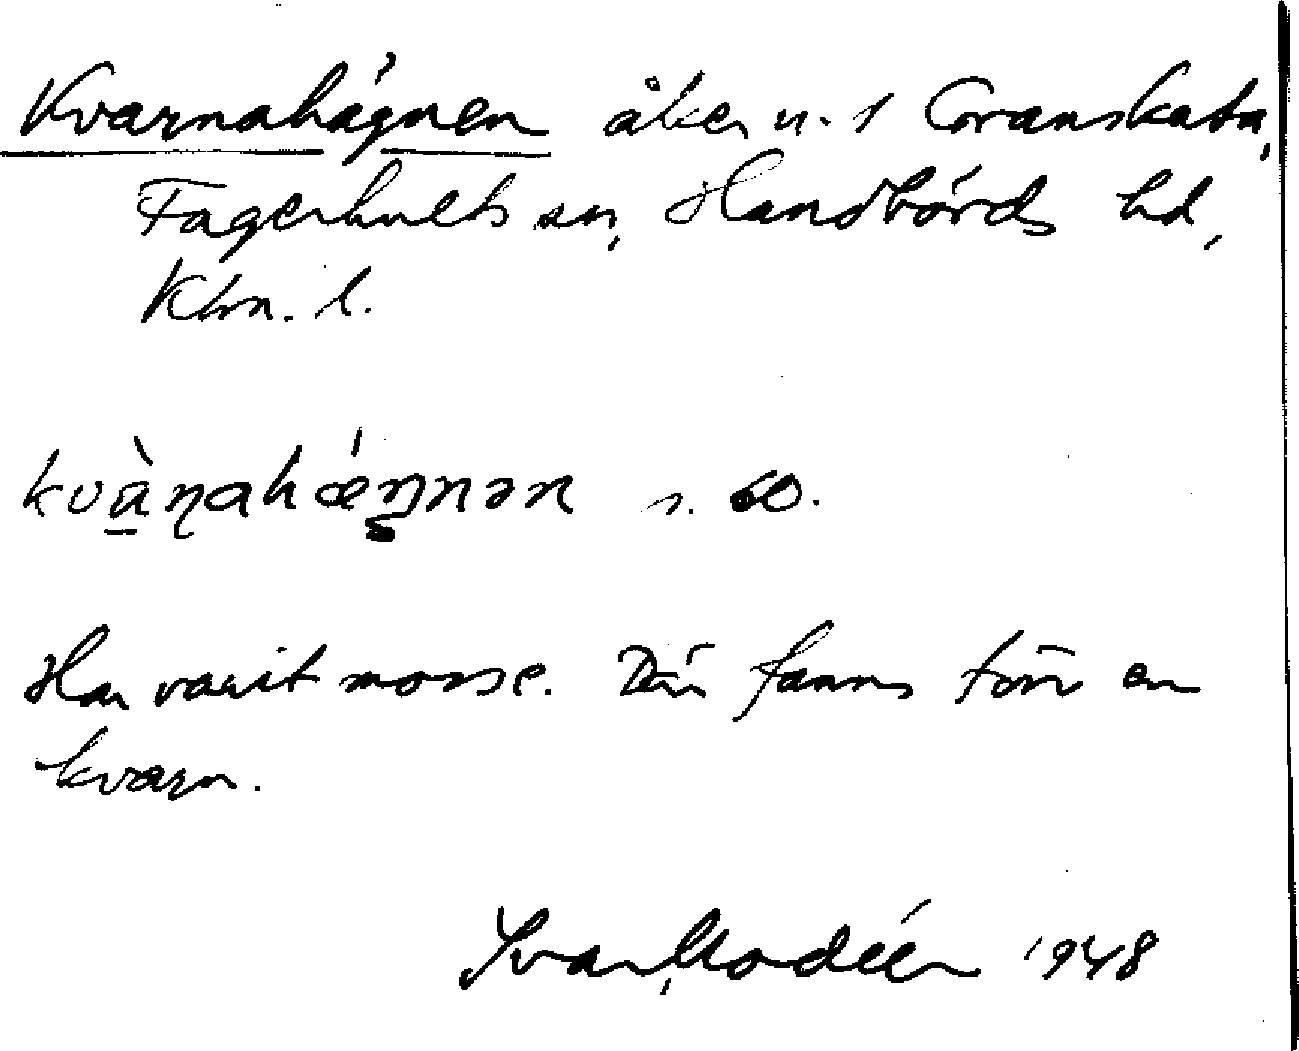 Kvarnahägnen åker u. 1 Granskata,
Fagerhults sn, Handbörds hd,
Klm. l.
kvàṇahǽŋnən s. 60.
Har varit mosse. Där fanns förr en
kvarn.
Ivar Modéer 1948